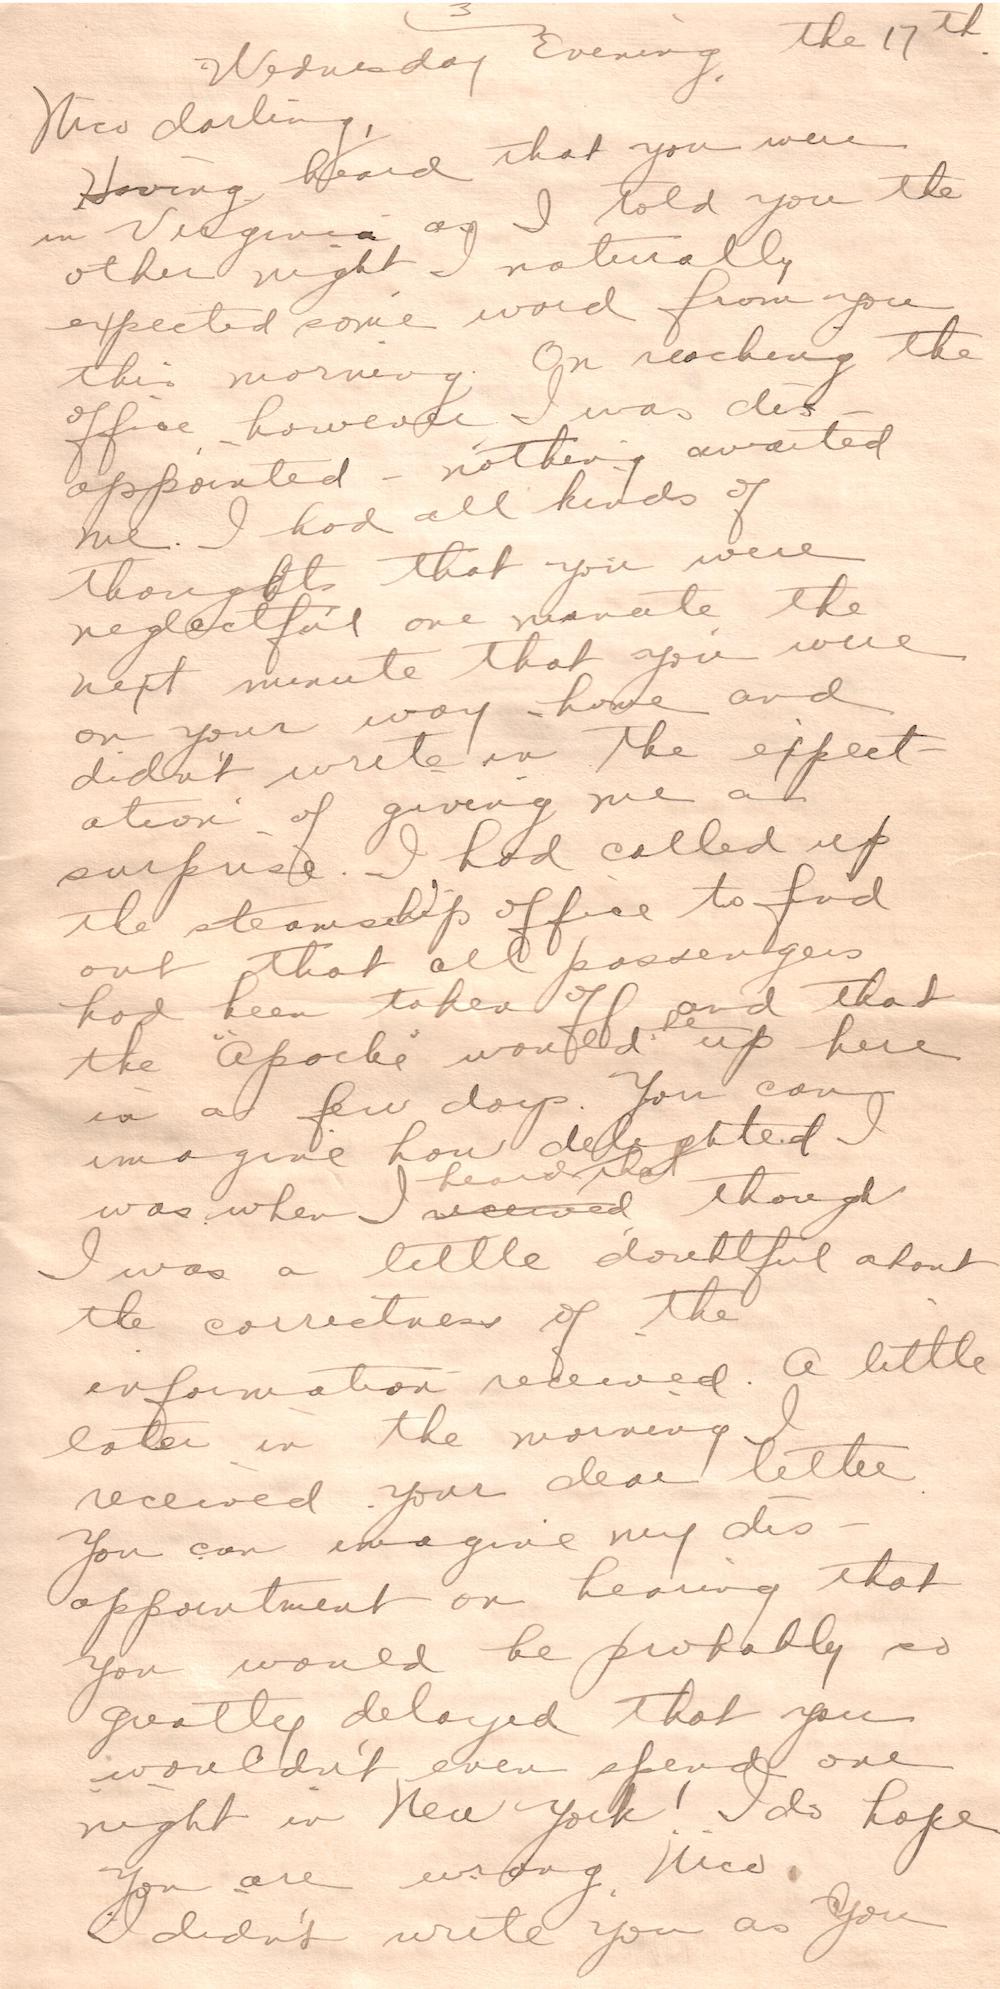 3
Wednesday Evening, the 17th.
Nico darling,
Having heard that you were
in Virginia as I told you the
other night I naturally
expected some word from you
this morning. On reaching the
office however I was dis-
appointed - nothing awaited
me. I had all kinds of
thoughts that you were
neglectful one minute the
next minute that you were
on your way home and
didn't write in the expect-
ation of giving me a
surprise. I had called up
the steamship office to find
out that all passengers
had been taken off and that
the "Apache" would be up here
in a few days. You can
imagine how delighted I
was when I received heard that though
I was a little doubtful about
the correctness of the
information received. A little
later in the morning I
received your dear letter.
You can imagine my dis-
appointment on hearing that
you would be probably so
greatly delayed that you
wouldn't even spend one
night in New York! I do hope
you are wrong, Nico.
I didn't write you as you